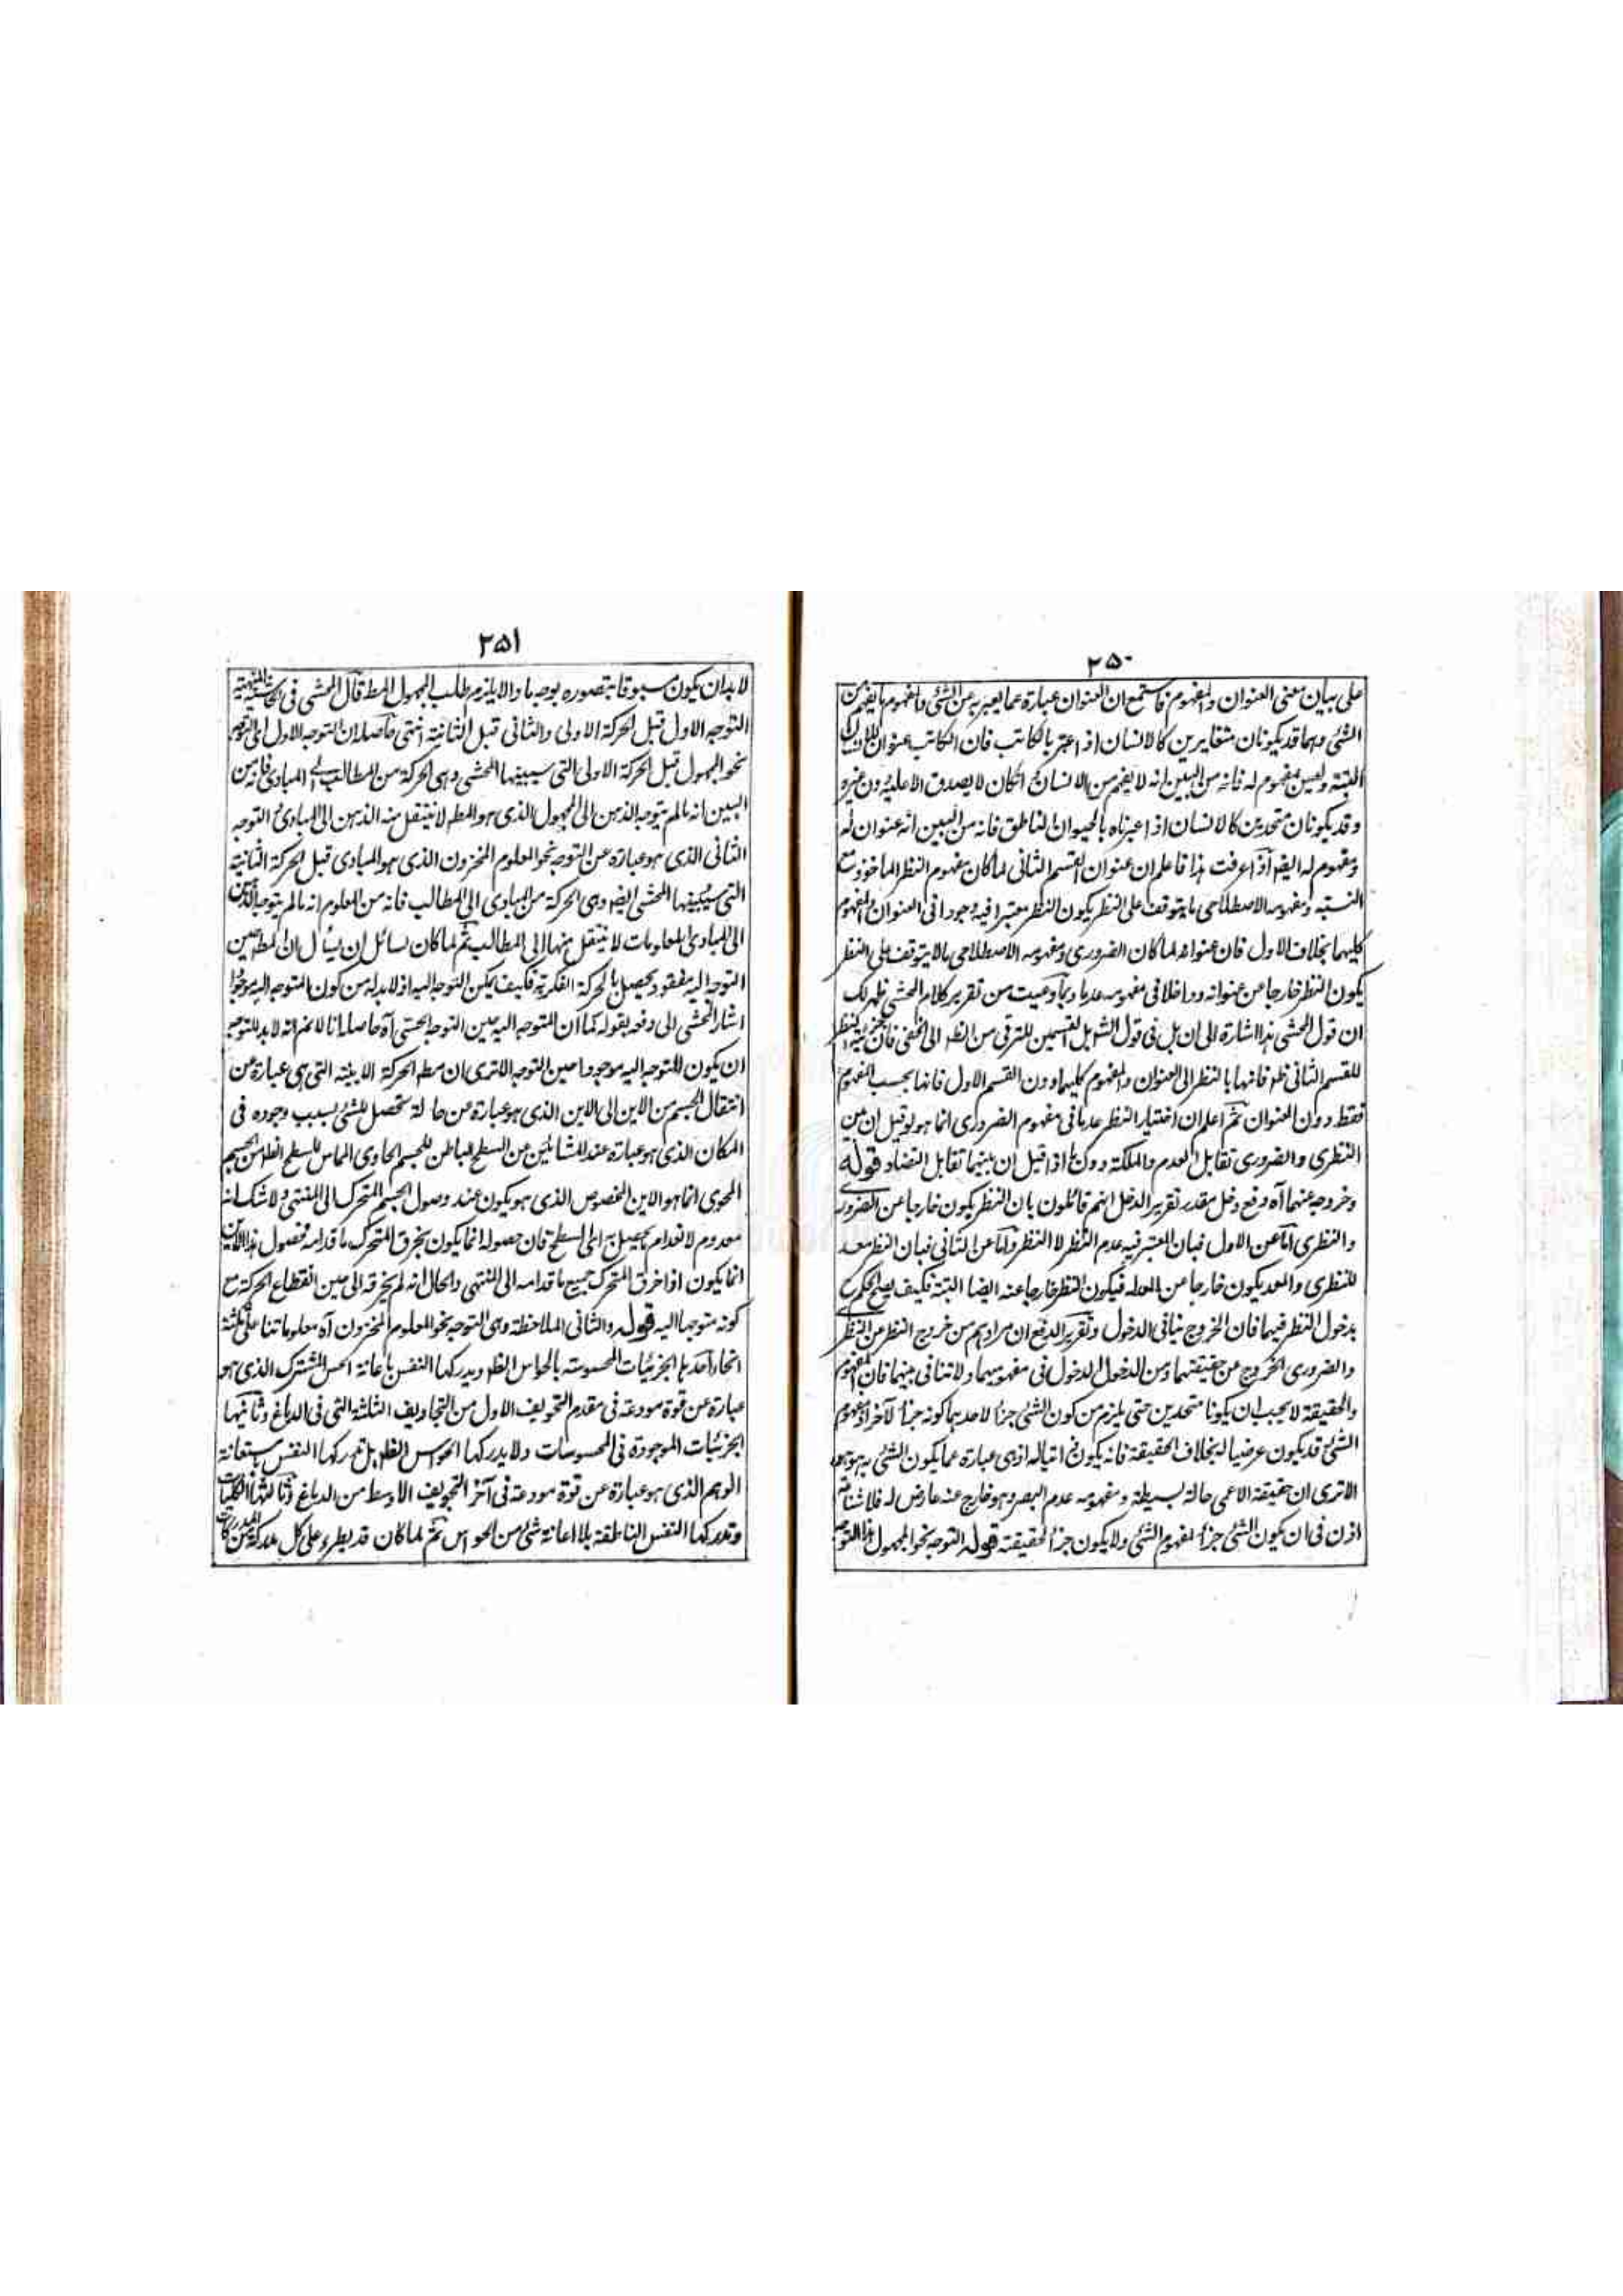 ٢٥٠
على بيان معنى العنوان والمفهوم فاستمع ان العنوان عبارة عما يعبر به عن الشئ والمفهوم ما يفهم من
الشئ وهما قد يكونان متغايرين كالانسان اذا عبر بالكاتب فان الكاتب عنوان للانسان
البتة وليس بمفهوم له فانه من البين انه لا يفهم من الانسان وان كان لا يصدق الا عليه دون غيره
وقد يكونان متحدين كالانسان اذا عبرناه بالحيوان الناطق فانه من البين انه عنوان له
ومفهوم له ايضا اذا عرفت هذا فاعلم ان عنوان القسم الثانى لما كان مفهوم النظر الماخوذ مع
النسبة ومفهومه الاصطلاحى ما يتوقف على النظر يكون النظر معتبرا فيه وجودا فى العنوان والمفهوم
كليهما بخلاف الاول فان عنوانه لما كان الضرورى ومفهومه الاصطلاحى ما لا يتوقف على النظر
يكون النظر خارجا عن عنوانه وداخلا فى مفهومه عدما وبما وعيت من تقرير كلام المحشى ظهر لك
ان قول المحشى هذا اشارة الى ان بل فى قول الشه بل لقسمين للترقى من الظه الى الخفى فان جزئية النظر
للقسم الثانى ظه فانها بالنظر الى العنوان والمفهوم كليهما دون القسم الاول فانها بحسب المفهوم
فقط دون العنوان ثم اعلم ان اختيار النظر عدما فى مفهوم الضرورى انما هو لو قيل ان بين
النظرى والضرورى تقابل العدم والملكة دون ما اذا قيل ان بينهما تقابل التضاد قوله
وخروجه عنهما آه دفع دخل مقدر تقرير الدخل انهم قائلون بان النظر يكون خارجا عن الضرورى
والنظرى اما عن الاول فبان المعتبر فيه عدم النظر لا النظر واما عن الثانى فبان النظر معد
للنظرى والمعد يكون خارجا عن المعد له فيكون النظر خارجا عنه ايضا البتة فكيف يصح الحكم
بدخول النظر فيهما فان الخروج ينافى الدخول وتقرير الدفع ان مرادهم من خروج النظر عن النظرى
والضرورى الخروج عن حقيقتهما ومن الدخول الدخول فى مفهوميهما ولا تنافى بينهما فان المفهوم
والحقيقة لا يجب ان يكونا متحدين حتى يلزم من كون الشئ جزءا لاحدهما كونه جزءا للآخر اذ مفهوم
الشئ قد يكون عرضيا له بخلاف الحقيقة فانه يكون ذاتيا له اذ هى عبارة عما يكون الشئ به هو هو
الا ترى ان حقيقة الاعمى حالة بسيطة ومفهومه عدم البصر وهو خارج عنه عارض له فلا شناعة
اذن فى ان يكون الشئ جزءا لمفهوم الشئ ولا يكون جزءا لحقيقته قوله التوجه نحو المجهول هذا التوجه
٢٥١
لا بد ان يكون مسبوقا بتصوره بوجه ما والا يلزم طلب المجهول المط قال المحشى فى الحاشية المنهية
التوجه الاول قبل الحركة الاولى والثانى قبل الثانية انتهى حاصله ان التوجه الاول اى التوجه
نحو المجهول قبل الحركة الاولى التى سيبينها المحشى وهى الحركة من المطالب الى المبادى فانه من
البين انه ما لم يتوجه الذهن الى المجهول الذى هو المطه لا ينتقل منه الذهن الى المبادى والتوجه
الثانى الذى هو عبارة عن التوجه نحو المعلوم المخزون الذى هو المبادى قبل الحركة الثانية
التى سيبينها المحشى ايضا وهى الحركة من المبادى الى المطالب فانه من المعلوم انه ما لم يتوجه الذهن
الى المبادى المعلومات لا ينتقل منها الى المطالب ثم لما كان لسائل ان يسأل ان المط حين
التوجه اليه مفقود يحصل بالحركة الفكرية فكيف يمكن التوجه اليه اذ لا بد له من كون المتوجه اليه موجودا
اشار المحشى الى دفعه بقوله كما ان المتوجه اليه حين التوجه الحسى آه حاصله انا لا نم انه لا بد للتوجه
ان يكون المتوجه اليه موجودا حين التوجه الا ترى ان مطه الحركة الاينية التى هى عبارة عن
انتقال الجسم من الاين الى الاين الذى هو عبارة عن حالة تحصل للشئ بسبب وجوده فى
المكان الذى هو عبارة عند المشائين عن السطح الباطن للجسم الحاوى المماس للسطح الظاهر من الجسم
المحوى انما هو الاين المخصوص الذى هو يكون عند وصول الجسم المتحرك الى المنتهى ولا شك انه
معدوم لانعدام ما يحصل به اعنى السطح فان حصوله انما يكون بخرق المتحرك ما قدامه فحصول هذا الاين
انما يكون اذا خرق المتحرك جميع ما قدامه الى المنتهى والحال انه لم يخرقه الى حين انقطاع الحركة مع
كونه متوجها اليه قوله والثانى الملاحظة وهى التوجه نحو المعلوم المخزون آه معلوماتنا على ثلثة
انحاء احدها الجزئيات المحسوسة بالحواس الظه ويدركها النفس باعانة الحس المشترك الذى هو
عبارة عن قوة مودعة فى مقدم التجويف الاول من التجاويف الثلثة التى فى الدماغ وثانيها
الجزئيات الموجودة فى المحسوسات ولا يدركها الحواس الظه بل تدركها النفس باستعانة
الوهم الذى هو عبارة عن قوة مودعة فى آخر التجويف الاوسط من الدماغ وثالثها الكليات
وتدركها النفس الناطقة بلا اعانة شئ من الحواس ثم لما كان قد يطرء على كل مدركة من